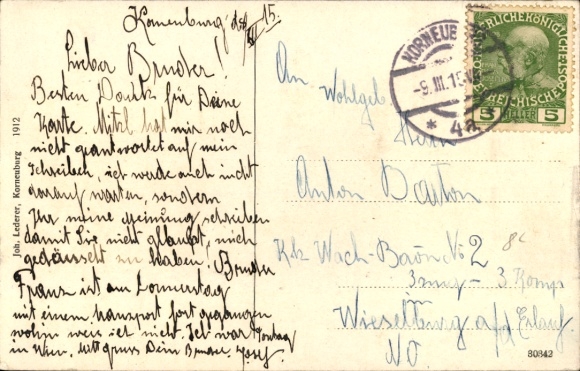 Korneuburg den 8/III 15.
Lieber Bruder!
Besten Dank für Deine
Karte. Mitzl hat mir noch
nicht geantwortet auf mein
Schreiben, ich werde auch nicht
darauf warten, sondern
Ihr meine Meinung schreiben
damit Sie nicht glaubt, mich
getäuscht zu haben! Bruder
Franz ist am Donnerstag
mit einem Transport fort gegangen
wohin weis ich nicht. Ich war Sonntag
in Wien, Mit Gruss Dein Bruder Josef.
Joh. Lederer, Korneuburg 1912
KORNEUB
-9.III.15
* 4a
5 HELLER 5
An Wohlgeb.
Herrn
Anton Barton
K.k. Wach-Baon No 2
3 Komp
Wieselburg a/d Erlauf
N.Ö.
80842